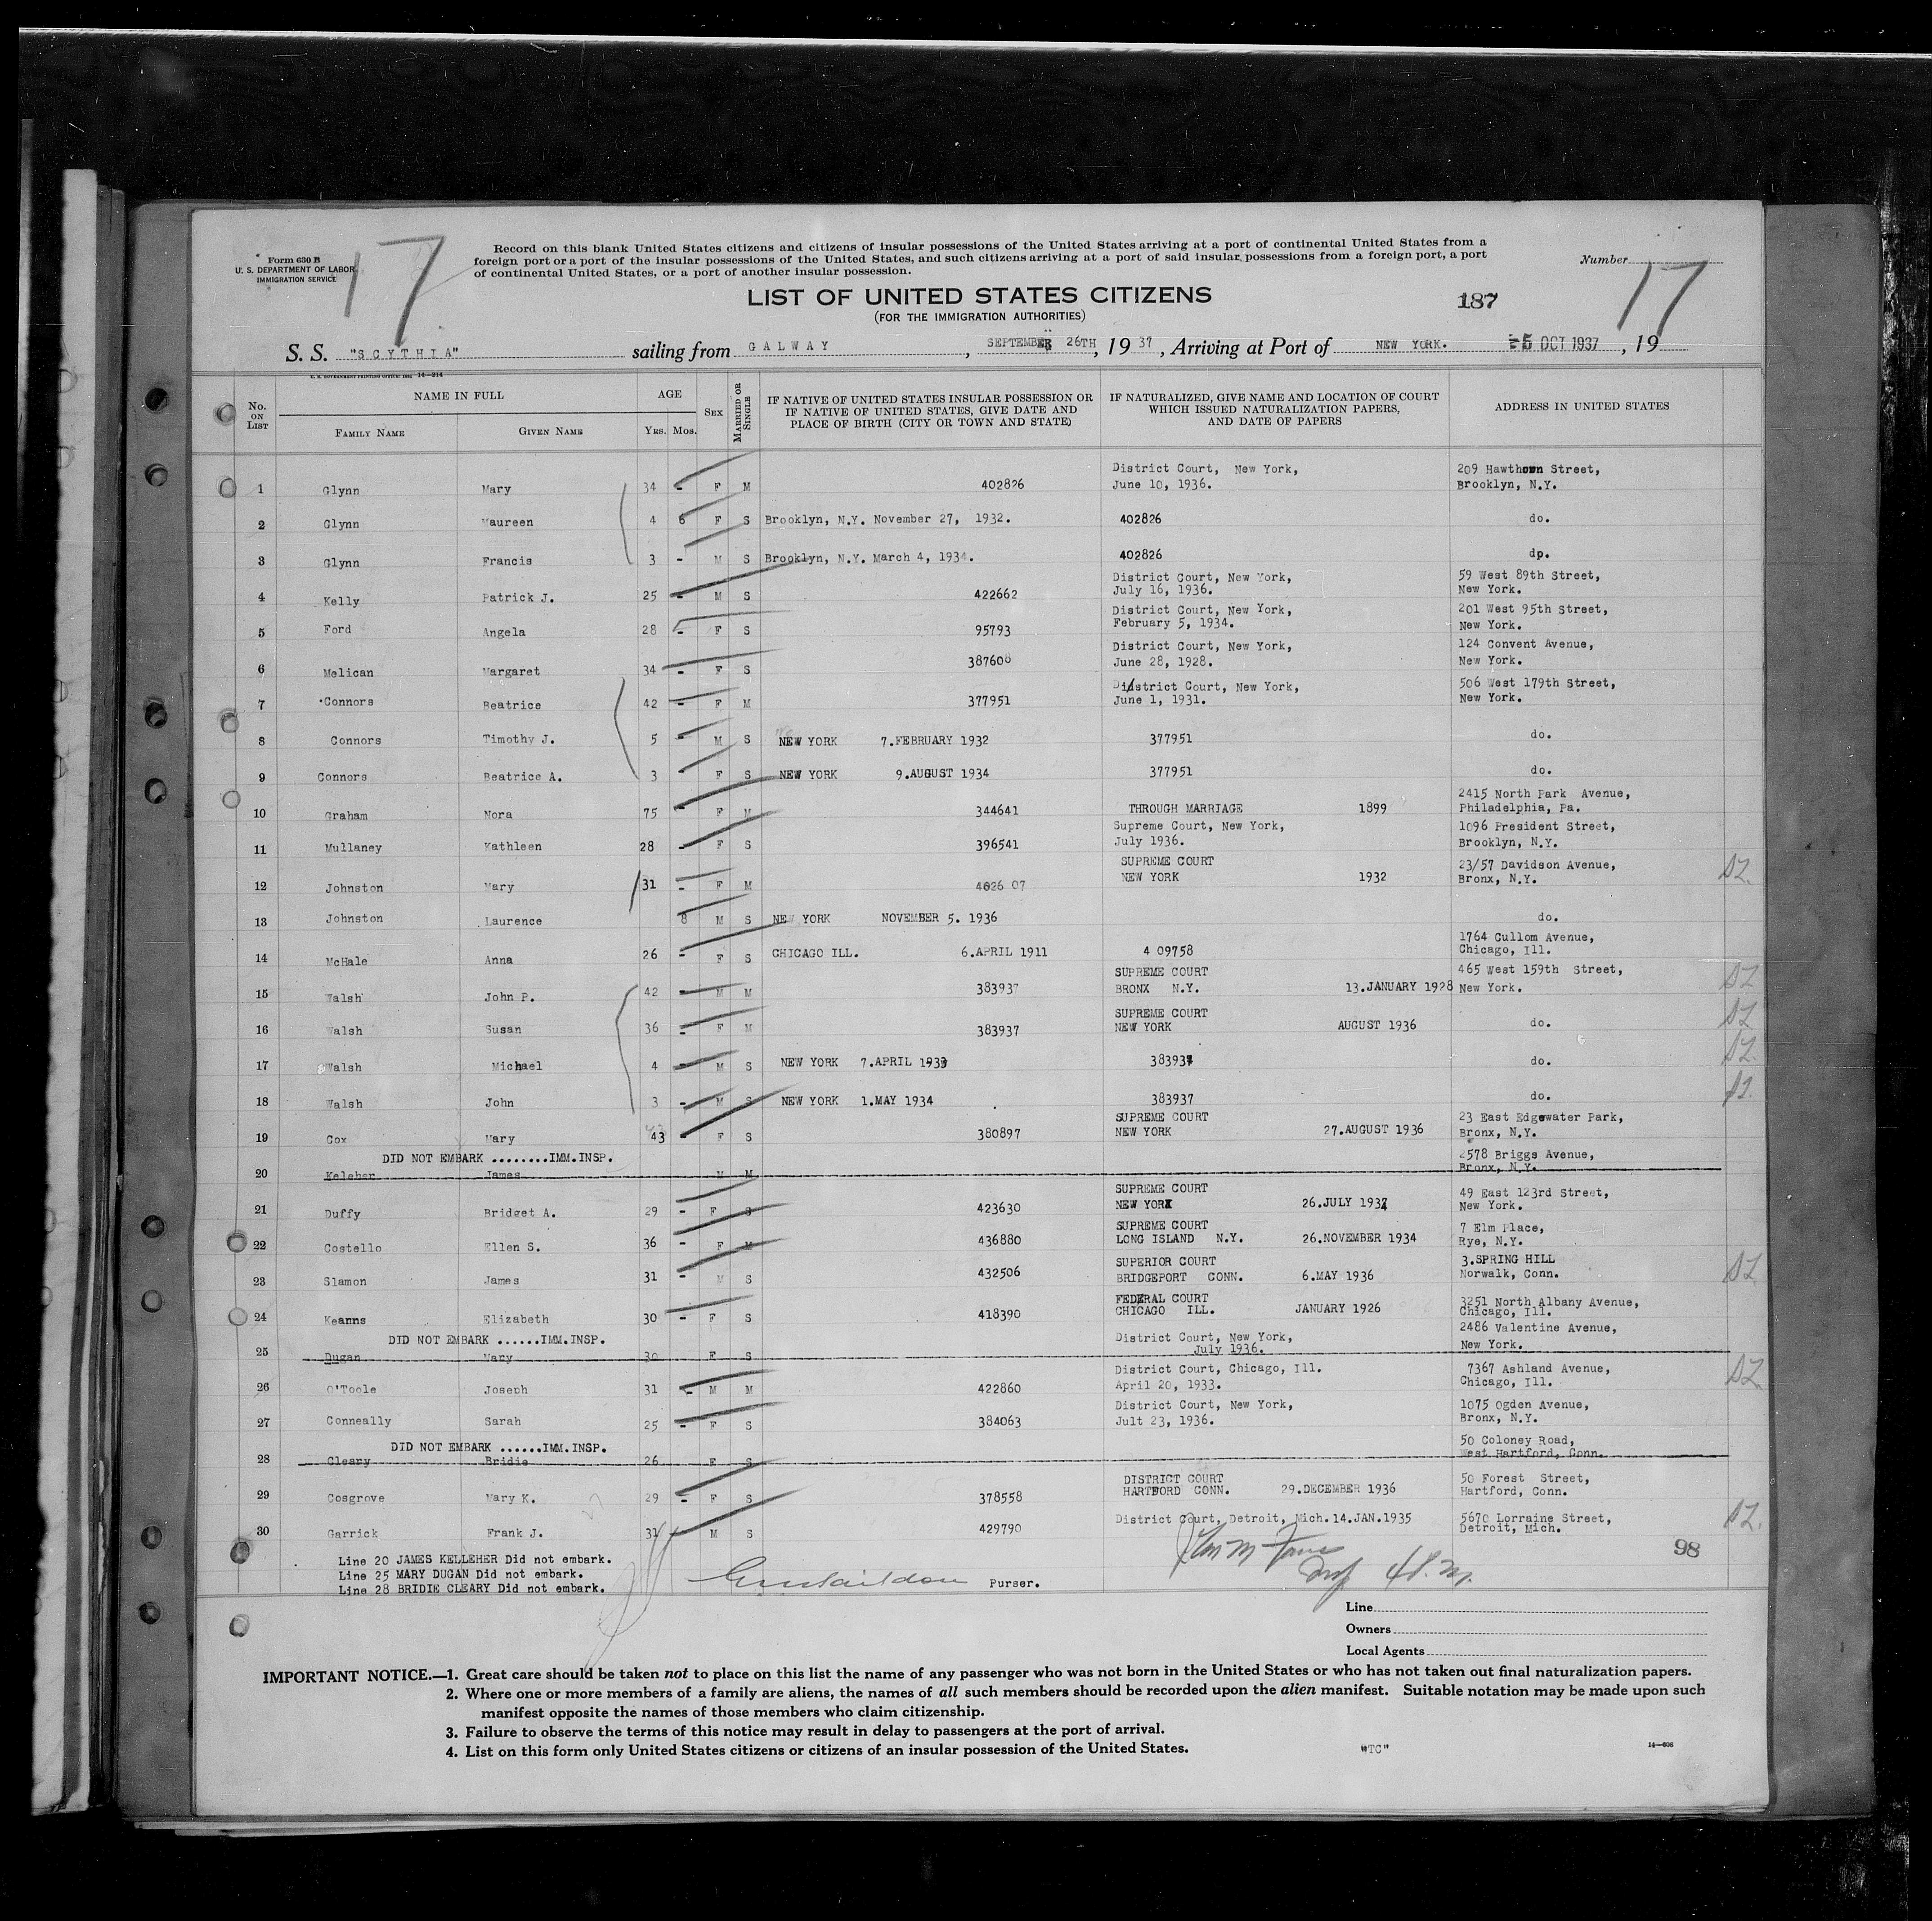 17
Form 630 B
U. S. DEPARTMENT OF LABOR
IMMIGRATION SERVICE
Record on this blank United States citizens and citizens of insular possessions of the United States arriving at a port of continental United States from a
foreign port or a port of the insular possessions of the United States, and such citizens arriving at a port of said insular possessions from a foreign port, a port
of continental United States, or a port of another insular possession.
Number
17
LIST OF UNITED STATES CITIZENS
187
(FOR THE IMMIGRATION AUTHORITIES)
S. S. "SCYTHIA" sailing from GALWAY, SEPTEMBER 26TH, 1937, Arriving at Port of NEW YORK. 5 OCT 1937, 19
No. ON LIST NAME IN FULL AGE SEX MARRIED OR SINGLE IF NATIVE OF UNITED STATES INSULAR POSSESSION OR IF NATIVE OF UNITED STATES, GIVE DATE AND PLACE OF BIRTH (CITY OR TOWN AND STATE) IF NATURALIZED, GIVE NAME AND LOCATION OF COURT WHICH ISSUED NATURALIZATION PAPERS, AND DATE OF PAPERS ADDRESS IN UNITED STATES
FAMILY NAME GIVEN NAME YRS. MOS.
1 Glynn Mary 34 - F M 402826 District Court, New York, June 10, 1936. 209 Hawthorn Street, Brooklyn, N.Y.
2 Glynn Maureen 4 6 F S Brooklyn, N.Y. November 27, 1932. 402826 do.
3 Glynn Francis 3 - M S Brooklyn, N.Y. March 4, 1934. 402826 dp.
4 Kelly Patrick J. 25 - M S 422662 District Court, New York, July 16, 1936. 59 West 89th Street, New York.
5 Ford Angela 28 - F S 95793 District Court, New York, February 5, 1934. 201 West 95th Street, New York.
6 Melican Margaret 34 - F S 387608 District Court, New York, June 28, 1928. 124 Convent Avenue, New York.
7 Connors Beatrice 42 - F M 377951 District Court, New York, June 1, 1931. 506 West 179th Street, New York.
8 Connors Timothy J. 5 - M S NEW YORK 7.FEBRUARY 1932 377951 do.
9 Connors Beatrice A. 3 - F S NEW YORK 9.AUGUST 1934 377951 do.
10 Graham Nora 75 - F M 344641 THROUGH MARRIAGE 1899 2415 North Park Avenue, Philadelphia, Pa.
11 Mullaney Kathleen 28 - F S 396541 Supreme Court, New York, July 1936. 1096 President Street, Brooklyn, N.Y.
12 Johnston Mary 31 - F M 4026 07 SUPREME COURT NEW YORK 1932 23/57 Davidson Avenue, Bronx, N.Y.
13 Johnston Laurence 8 M S NEW YORK NOVEMBER 5. 1936 do.
14 McHale Anna 26 - F S CHICAGO ILL. 6.APRIL 1911 4 09758 1764 Cullom Avenue, Chicago, Ill.
15 Walsh John P. 42 - M M 383937 SUPREME COURT BRONX N.Y. 13.JANUARY 1928 465 West 159th Street, New York.
16 Walsh Susan 36 - F M 383937 SUPREME COURT NEW YORK AUGUST 1936 do.
17 Walsh Michael 4 - M S NEW YORK 7.APRIL 1933 383937 do.
18 Walsh John 3 - M S NEW YORK 1.MAY 1934 383937 do.
19 Cox Mary 43 - F S 380897 SUPREME COURT NEW YORK 27.AUGUST 1936 23 East Edgewater Park, Bronx, N.Y.
DID NOT EMBARK ........IMM.INSP.
20 Keleher James M M 2578 Briggs Avenue, Bronx, N.Y.
21 Duffy Bridget A. 29 - F S 423630 SUPREME COURT NEW YORK 26.JULY 1937 49 East 123rd Street, New York.
22 Costello Ellen S. 36 - F M 436880 SUPREME COURT LONG ISLAND N.Y. 26.NOVEMBER 1934 7 Elm Place, Rye, N.Y.
23 Slamon James 31 - M S 432506 SUPERIOR COURT BRIDGEPORT CONN. 6.MAY 1936 3.SPRING HILL Norwalk, Conn.
24 Keanns Elizabeth 30 - F S 418390 FEDERAL COURT CHICAGO ILL. JANUARY 1926 3251 North Albany Avenue, Chicago, Ill.
DID NOT EMBARK ......IMM.INSP.
25 Dugan Mary 30 F S District Court, New York, July 1936. 2486 Valentine Avenue, New York.
26 O'Toole Joseph 31 - M M 422860 District Court, Chicago, Ill. April 20, 1933. 7367 Ashland Avenue, Chicago, Ill.
27 Conneally Sarah 25 - F S 384063 District Court, New York, Jult 23, 1936. 1075 Ogden Avenue, Bronx, N.Y.
DID NOT EMBARK ......IMM.INSP.
28 Cleary Bridie 26 F S 50 Coloney Road, West Hartford, Conn.
29 Cosgrove Mary K. 29 - F S 378558 DISTRICT COURT HARTFORD CONN. 29.DECEMBER 1936 50 Forest Street, Hartford, Conn.
30 Garrick Frank J. 31 M S 429790 District Court, Detroit, Mich. 14.JAN.1935 5670 Lorraine Street, Detroit, Mich.
98
Line 20 JAMES KELLEHER Did not embark.
Line 25 MARY DUGAN Did not embark.
Line 28 BRIDIE CLEARY Did not embark.
Purser.
Line
Owners
Local Agents
IMPORTANT NOTICE.—1. Great care should be taken not to place on this list the name of any passenger who was not born in the United States or who has not taken out final naturalization papers.
2. Where one or more members of a family are aliens, the names of all such members should be recorded upon the alien manifest. Suitable notation may be made upon such
manifest opposite the names of those members who claim citizenship.
3. Failure to observe the terms of this notice may result in delay to passengers at the port of arrival.
4. List on this form only United States citizens or citizens of an insular possession of the United States.
"TC"
14—608